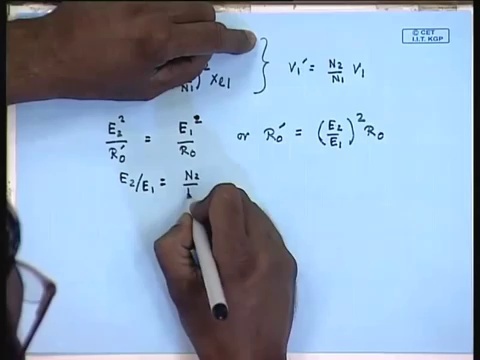 © CET
I.I.T. KGP
N1)² Xe1 } V1′ = N2/N1 V1
E2²/R0′ = E1²/R0 or R0′ = (E2/E1)² R0
E2/E1 = N2